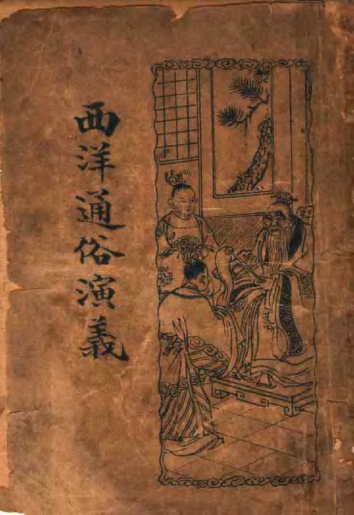 西洋通俗演義